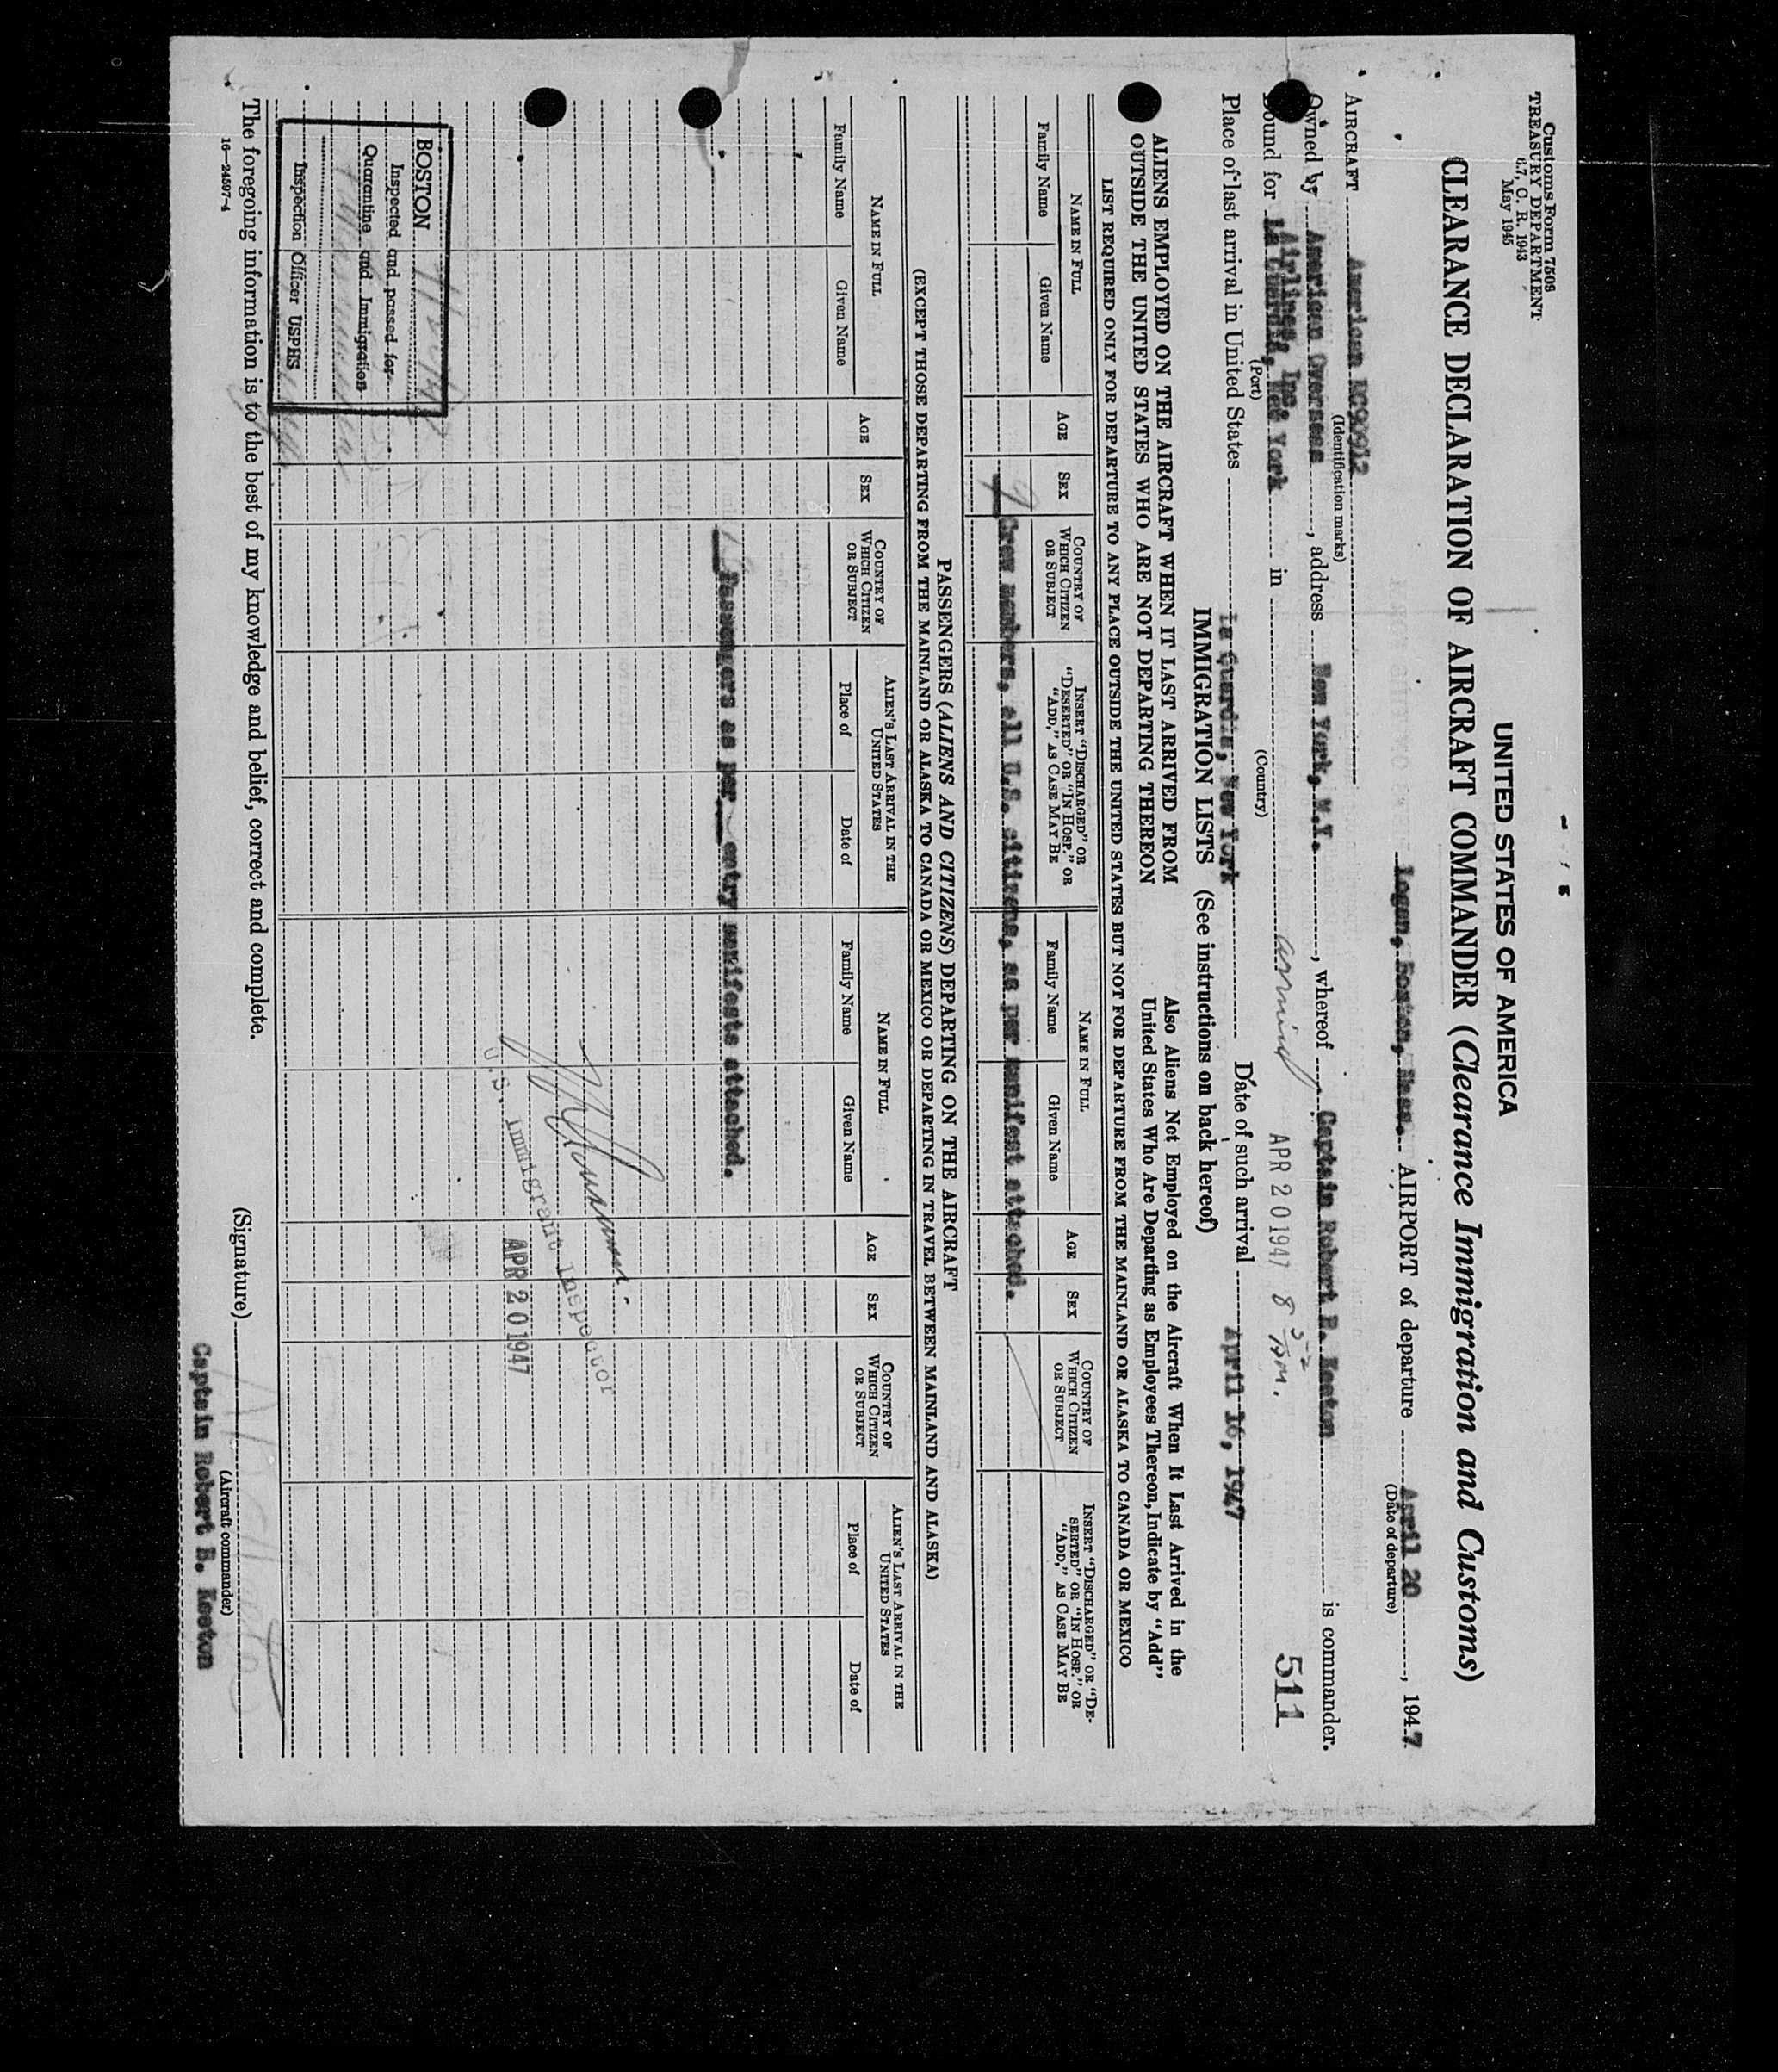 Customs Form 7508
TREASURY DEPARTMENT
6.7, C. R. 1943
May 1945
UNITED STATES OF AMERICA
CLEARANCE DECLARATION OF AIRCRAFT COMMANDER (Clearance Immigration and Customs)
Logan, Boston, Mass. AIRPORT of departure April 20, 1947
(Date of departure)
AIRCRAFT American NC90912
(Identification marks)
Owned by American Overseas, address New York, N.Y., whereof Captain Robert B. Keeton is commander.
Airlines, Inc.
Bound for La Guardia, New York in arrived APR 20 1947 8 AM. 511
(Port) (Country)
Place of last arrival in United States La Guardia, New York Date of such arrival April 16, 1947
IMMIGRATION LISTS (See instructions on back hereof)
ALIENS EMPLOYED ON THE AIRCRAFT WHEN IT LAST ARRIVED FROM OUTSIDE THE UNITED STATES WHO ARE NOT DEPARTING THEREON
Also Aliens Not Employed on the Aircraft When It Last Arrived in the United States Who Are Departing as Employees Thereon, Indicate by "Add"
LIST REQUIRED ONLY FOR DEPARTURE TO ANY PLACE OUTSIDE THE UNITED STATES BUT NOT FOR DEPARTURE FROM THE MAINLAND OR ALASKA TO CANADA OR MEXICO
NAME IN FULL
Family Name Given Name
AGE
SEX
COUNTRY OF WHICH CITIZEN OR SUBJECT
INSERT "DISCHARGED" OR "DESERTED" OR "IN HOSP." OR "ADD," AS CASE MAY BE
NAME IN FULL
Family Name Given Name
AGE
SEX
COUNTRY OF WHICH CITIZEN OR SUBJECT
INSERT "DISCHARGED" OR "DESERTED" OR "IN HOSP." OR "ADD," AS CASE MAY BE
7 Crew members, all U.S. citizens, as per manifest attached.
PASSENGERS (ALIENS AND CITIZENS) DEPARTING ON THE AIRCRAFT
(EXCEPT THOSE DEPARTING FROM THE MAINLAND OR ALASKA TO CANADA OR MEXICO OR DEPARTING IN TRAVEL BETWEEN MAINLAND AND ALASKA)
NAME IN FULL
Family Name Given Name
AGE
SEX
COUNTRY OF WHICH CITIZEN OR SUBJECT
ALIEN'S LAST ARRIVAL IN THE UNITED STATES
Place of Date of
NAME IN FULL
Family Name Given Name
AGE
SEX
COUNTRY OF WHICH CITIZEN OR SUBJECT
ALIEN'S LAST ARRIVAL IN THE UNITED STATES
Place of Date of
Passengers as per entry manifests attached.
U.S. Immigrant Inspector
APR 20 1947
BOSTON
Inspected and passed for
Quarantine and Immigration
Inspection Officer USPHS
The foregoing information is to the best of my knowledge and belief, correct and complete.
16—24597-4
(Signature)
(Aircraft commander)
Captain Robert B. Keeton